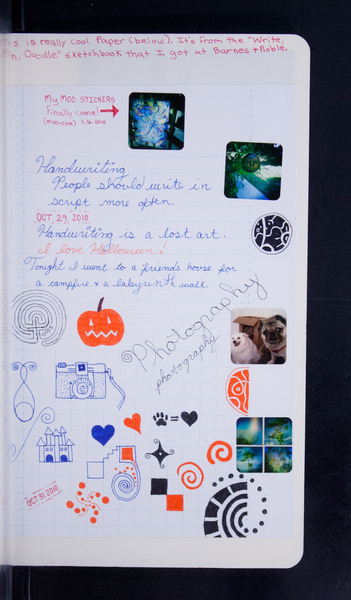 is really cool Paper (below). It's from the "Write,
Doodle" sketchbook that I got at Barnes + Noble.
My MOO STICKERS
Finally came!
(moo.com) 11.16.2010
Handwriting
People should write in
script more often.
OCT 29, 2010
Handwriting is a lost art.
I love Halloween!
Tonight I went to a friend's house for
a campfire + a labyrinth walk.
Photography
photography
=
OCT 31 2010